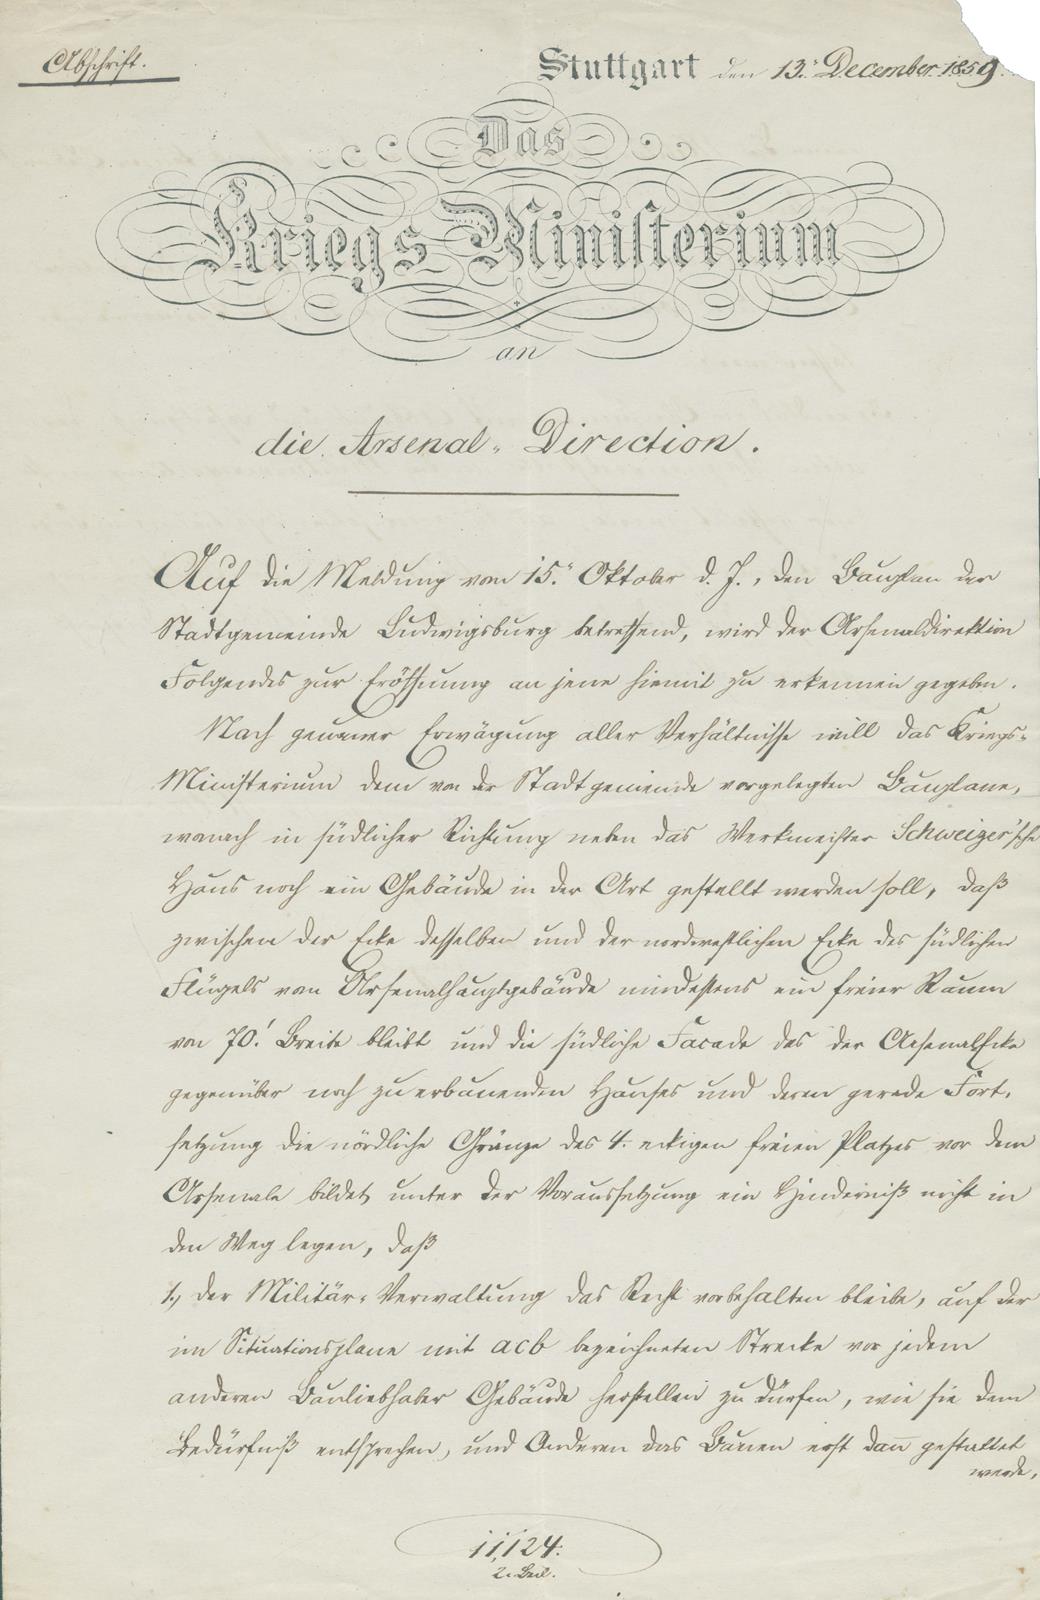 Abschrift.
Stuttgart den 13. December 1859.
Das
Kriegs Ministerium
an
die Arsenal-Direction.
Auf die Meldung vom 15. Oktober d. J., den Bauplan der
Stadtgemeinde Ludwigsburg betreffend, wird der Arsenaldirektion
Folgendes zur Eröffnung an jene hiemit zu erkennen gegeben.
Nach genauer Erwägung aller Verhältnisse will das Kriegs-
Ministerium dem von der Stadtgemeinde vorgelegten Bauplane,
wonach in südlicher Richtung neben das Werkmeister Schweizer'sche
Haus noch ein Gebäude in der Art gestellt werden soll, daß
zwischen der Ecke desselben und der nordwestlichen Ecke des südlichen
Flügels vom Arsenalhauptgebäude mindestens ein freier Raum
von 70.' Breite bleibt und die südliche Facade des der ArsenalEcke
gegenüber noch zu erbauenden Hauses und deren gerade Fort-
setzung die nördliche Gränze des 4. eckigen freien Platzes vor dem
Arsenale bildet, unter der Voraussetzung ein Hinderniß nicht in
den Weg legen, daß
1., der Militär-Verwaltung das Recht vorbehalten bleibe, auf der
im Situationsplane mit acb bezeichneten Strecke vor jedem
anderen Bauliebhaber Gebäude herstellen zu dürfen, wie sie dem
Bedürfniß entsprechen, und Anderen das Bauen erst dan̄ gestattet
werde,
11,124.
2. Beil.